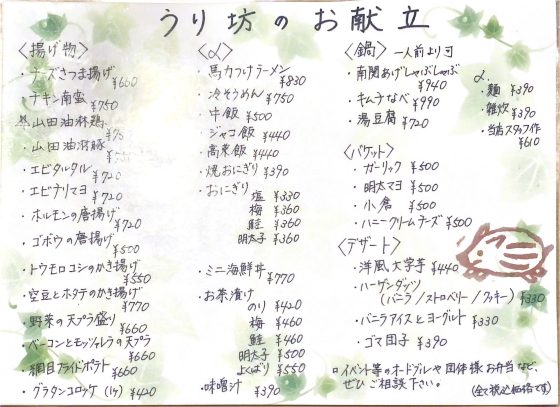 うり坊のお献立
〈揚げ物〉
・チーズさつま揚げ ¥660
・チキン南蛮 ¥750
山田油淋鶏
・山田油淋豚 ¥720
・エビタルタル ¥720
・エビチリマヨ ¥720
・ホルモンの唐揚げ ¥720
・ゴボウの唐揚げ ¥500
・トウモロコシのかき揚げ ¥550
・空豆とホタテのかき揚げ ¥770
・野菜の天プラ盛り ¥660
・ベーコンとモッツァレラの天プラ ¥660
・網目フライドポテト ¥660
・グラタンコロッケ(1ケ) ¥420
〈α〉
・馬力つけラーメン ¥830
・冷そうめん ¥750
・中飯 ¥500
・ジャコ飯 ¥440
・高菜飯 ¥440
・焼おにぎり ¥390
・おにぎり
塩 ¥330
梅 ¥360
鮭 ¥360
明太子 ¥360
・ミニ海鮮丼 ¥770
・お茶漬け
のり ¥420
梅 ¥460
鮭 ¥460
明太子 ¥500
よくばり ¥550
・味噌汁 ¥390
〈鍋〉 一人前より可
・南関あげしゃぶしゃぶ ¥940
・キムチなべ ¥990
・湯豆腐 ¥720
α.
・麺 ¥390
・雑炊 ¥390
・当店スタッフ作 ¥610
〈バケット〉
・ガーリック ¥500
・明太マヨ ¥500
・小倉 ¥500
・ハニークリームチーズ ¥500
〈デザート〉
・洋風大学芋 ¥440
・ハーゲンダッツ
(バニラ/ストロベリー/クッキー) ¥330
・バニラアイスとヨーグルト ¥330
・ゴマ団子 ¥390
イベント等のオードブルや団体様お弁当など、
ぜひご相談下さい。
(全て税込価格です)